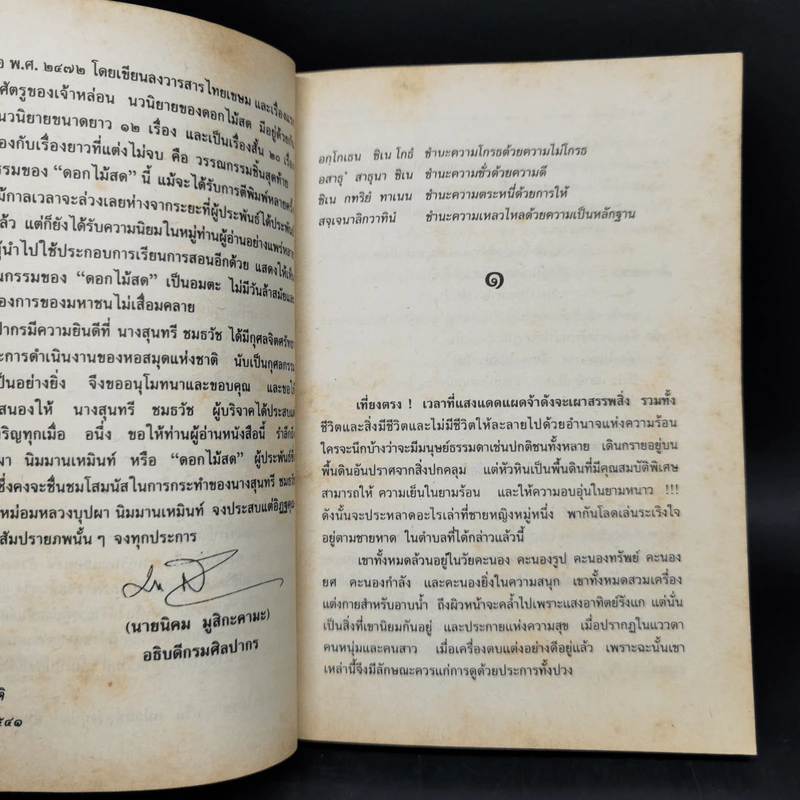 พ.ศ. ๒๔๗๒ โดยเขียนลงวารสารไทยเขษม และเรื่องแรก
ศัตรูของเจ้าหล่อน นวนิยายของดอกไม้สด มีอยู่ด้วยกัน
นวนิยายขนาดยาว ๑๒ เรื่อง และเป็นเรื่องสั้น ๒๐ เรื่อง
องกับเรื่องยาวที่แต่งไม่จบ คือ วรรณกรรมชิ้นสุดท้าย
รรมของ “ดอกไม้สด” นี้ แม้จะได้รับการตีพิมพ์หลายครั้ง
ม้กาลเวลาจะล่วงเลยห่างจากระยะที่ผู้ประพันธ์ได้ประพันธ์
ล้ว แต่ก็ยังได้รับความนิยมในหมู่ท่านผู้อ่านอย่างแพร่หลาย
ผู้นำไปใช้ประกอบการเรียนการสอนอีกด้วย แสดงให้เห็น
นกรรมของ “ดอกไม้สด” เป็นอมตะ ไม่มีวันล้าสมัยและ
องการของมหาชนไม่เสื่อมคลาย
ปากรมีความยินดีที่ นางสุนทรี ชมธวัช ได้มีกุศลจิตศรัทธา
ะการดำเนินงานของหอสมุดแห่งชาติ นับเป็นกุศลกรรม
ป็นอย่างยิ่ง จึงขออนุโมทนาและขอบคุณ และขอให้
สนองให้ นางสุนทรี ชมธวัช ผู้บริจาคได้ประสบแต่
ริญทุกเมื่อ อนึ่ง ขอให้ท่านผู้อ่านหนังสือนี้ รำลึกถึง
ผา นิมมานเหมินท์ หรือ “ดอกไม้สด” ผู้ประพันธ์ซึ่ง
ซึ่งคงจะชื่นชมโสมนัสในการกระทำของนางสุนทรี ชมธวัช
หม่อมหลวงบุปผา นิมมานเหมินท์ จงประสบแต่อิฏฐคุณ
สัมปรายภพนั้น ๆ จงทุกประการ
(นายนิคม มูสิกะคามะ)
อธิบดีกรมศิลปากร
ติ
๕๔๑
อกฺโกเธน ชิเน โกธํ ชำนะความโกรธด้วยความไม่โกรธ
อสาธุํ สาธุนา ชิเน ชำนะความชั่วด้วยความดี
ชิเน กทริยํ ทาเนน ชำนะความตระหนี่ด้วยการให้
สจฺเจนาลิกวาทินํ ชำนะความเหลวไหลด้วยความเป็นหลักฐาน
๑
เที่ยงตรง ! เวลาที่แสงแดดแผดจ้าดังจะเผาสรรพสิ่ง รวมทั้ง
ชีวิตและสิ่งมีชีวิตและไม่มีชีวิตให้ละลายไปด้วยอำนาจแห่งความร้อน
ใครจะนึกบ้างว่าจะมีมนุษย์ธรรมดาเช่นปกติชนทั้งหลาย เดินกรายอยู่บน
พื้นดินอันปราศจากสิ่งปกคลุม แต่หัวหินเป็นพื้นดินที่มีคุณสมบัติพิเศษ
สามารถให้ ความเย็นในยามร้อน และให้ความอบอุ่นในยามหนาว !!!
ดังนั้นจะประหลาดอะไรเล่าที่ชายหญิงหมู่หนึ่ง พากันโลดเล่นระเริงใจ
อยู่ตามชายหาด ในตำบลที่ได้กล่าวแล้วนี้
เขาทั้งหมดล้วนอยู่ในวัยคะนอง คะนองรูป คะนองทรัพย์ คะนอง
ยศ คะนองกำลัง และคะนองยิ่งในความสนุก เขาทั้งหมดสวมเครื่อง
แต่งกายสำหรับอาบน้ำ ถึงผิวหน้าจะคล้ำไปเพราะแสงอาทิตย์รังแก แต่นั่น
เป็นสิ่งที่เขานิยมกันอยู่ และประกายแห่งความสุข เมื่อปรากฏในแววตา
คนหนุ่มและคนสาว เมื่อเครื่องตบแต่งอย่างดีอยู่แล้ว เพราะฉะนั้นเขา
เหล่านี้จึงมีลักษณะควรแก่การดูด้วยประการทั้งปวง